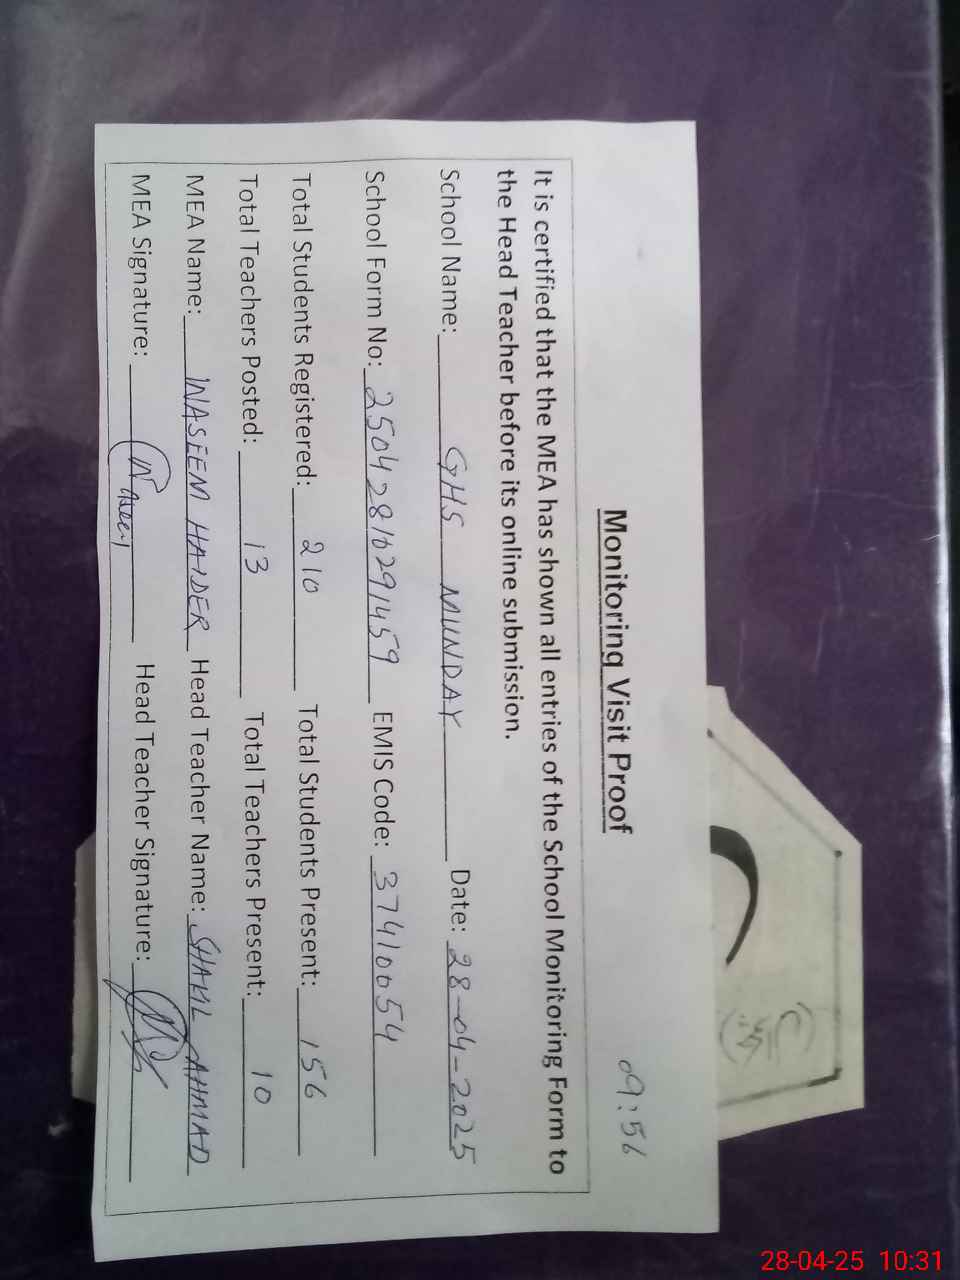 09:56
Monitoring Visit Proof
It is certified that the MEA has shown all entries of the School Monitoring Form to
the Head Teacher before its online submission.
School Name: GHS MUNDAY Date: 28-04-2025
School Form No: 25042810291459 EMIS Code: 37410054
Total Students Registered: 210 Total Students Present: 156
Total Teachers Posted: 13 Total Teachers Present: 10
MEA Name: WASEEM HAIDER Head Teacher Name: SHAKIL AHMAD
MEA Signature: Waseem Head Teacher Signature:
28-04-25 10:31